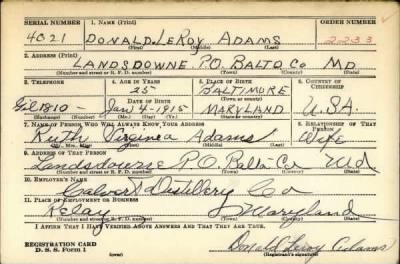 SERIAL NUMBER 1. NAME (Print) ORDER NUMBER
4021 DONALD LEROY ADAMS 2233
(First) (Middle) (Last)
2. ADDRESS (Print)
LANSDOWNE P.O. BALTO Co MD.
(Number and street or R. F. D. number) (Town) (County) (State)
3. TELEPHONE 4. AGE IN YEARS 5. PLACE OF BIRTH 6. COUNTRY OF CITIZENSHIP
25 BALTIMORE
(Town or county)
DATE OF BIRTH
1810- Jan 4-1915 MARYLAND U.S.A.
(Exchange) (Number) (Mo.) (Day) (Yr.) (State or country)
7. NAME OF PERSON WHO WILL ALWAYS KNOW YOUR ADDRESS 8. RELATIONSHIP OF THAT PERSON
Ruth Virginia Adams Wife
(Mr., Mrs., Miss) (First) (Middle) (Last)
9. ADDRESS OF THAT PERSON
Lansdowne P.O. Balto Co Md
(Number and street or R. F. D. number) (Town) (County) (State)
10. EMPLOYER'S NAME
Calvert Distillery Co
11. PLACE OF EMPLOYMENT OR BUSINESS
Relay Maryland
(Number and street or R. F. D. number) (Town) (County) (State)
I AFFIRM THAT I HAVE VERIFIED ABOVE ANSWERS AND THAT THEY ARE TRUE.
REGISTRATION CARD
D. S. S. Form 1 Donald Leroy Adams
(over) (Registrant's signature)